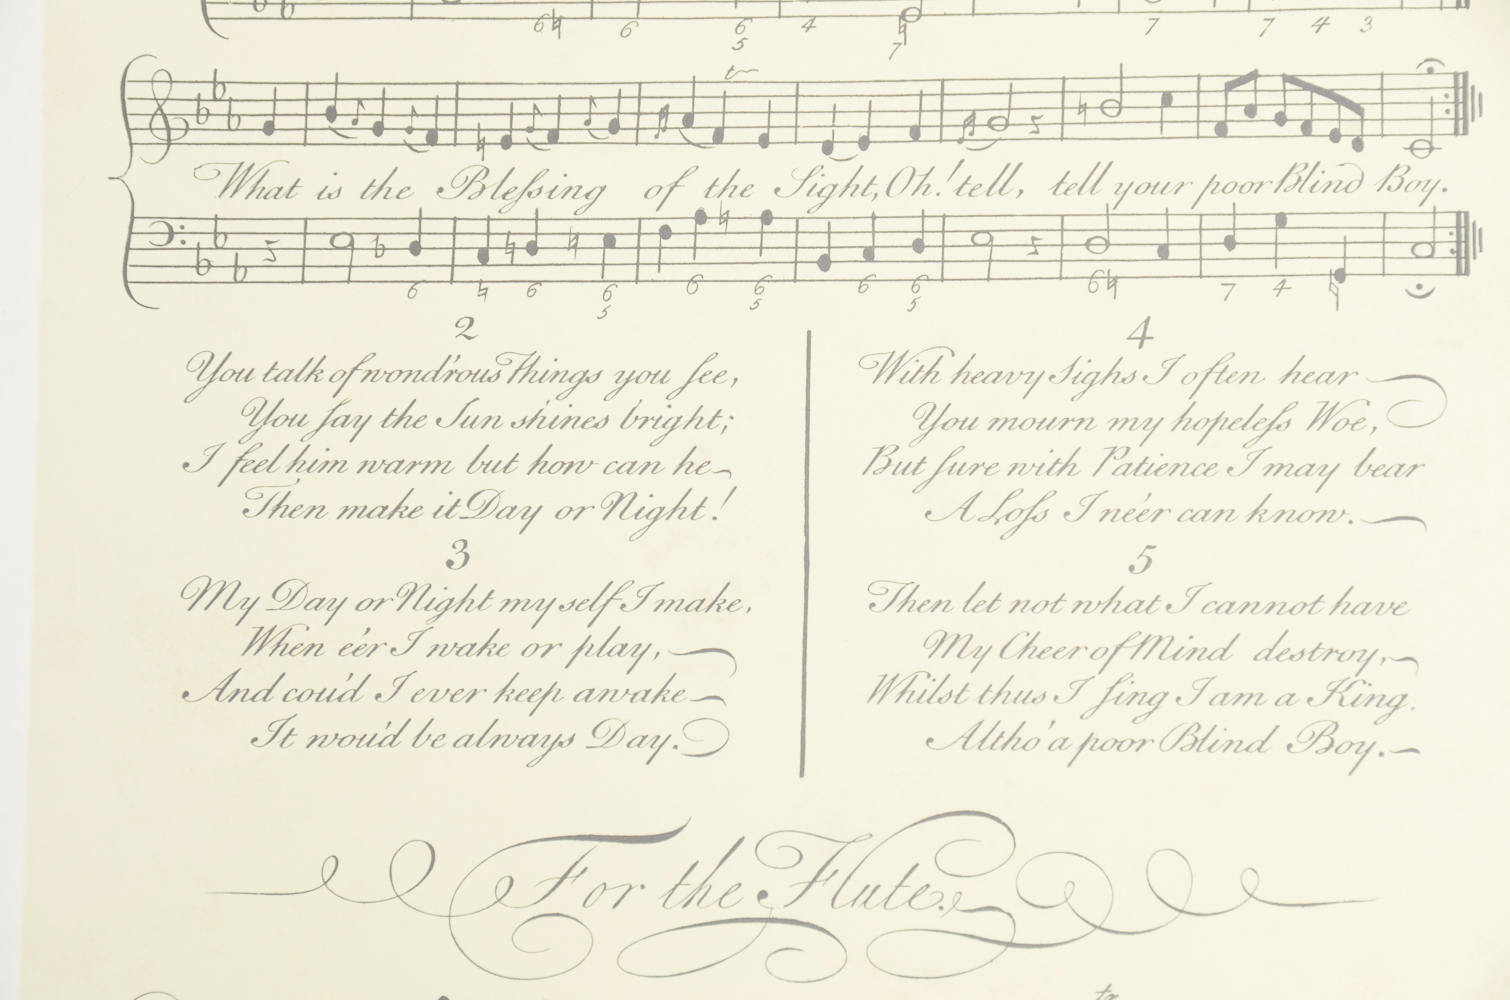 6♮ 6 6 4 ♮ 7 7 4 3
5 7
tr
What is the Bleſsing of the Sight, Oh! tell, tell your poor Blind Boy.
6 ♮ 6 6 6 6 6 6 6♮ 7 4 ♮
5 5 5
2
You talk of wond'rous Things you ſee,
You ſay the Sun shines bright;
I feel him warm but how can he
Then make it Day or Night!
3
My Day or Night my self I make,
When e'er I wake or play,
And cou'd I ever keep awake
It wou'd be always Day.
4
With heavy Sighs I often hear
You mourn my hopeleſs Woe,
But ſure with Patience I may bear
A Loſs I ne'er can know.
5
Then let not what I cannot have
My Cheer of Mind destroy,
Whilst thus I ſing I am a King.
Altho' a poor Blind Boy.
For the Flute.
tr